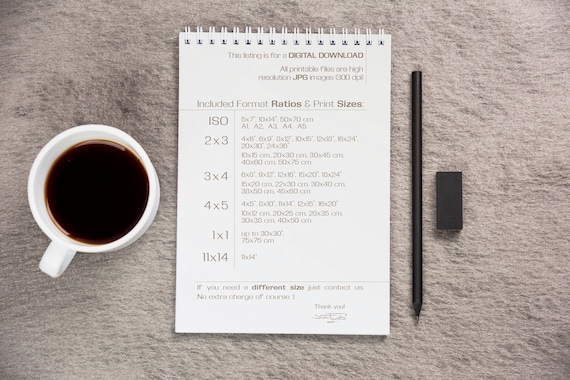 This listing is for a DIGITAL DOWNLOAD
All printable files are high
resolution JPG images (300 dpi)
Included Format Ratios & Print Sizes:
ISO
5x7", 10x14", 50x70 cm
A1, A2, A3, A4, A5
2x3
4x6", 6x9", 8x12", 10x15", 12x18", 16x24",
20x30", 24x36"
10x15 cm, 20x30 cm, 30x45 cm,
40x60 cm, 50x75 cm
3x4
6x8", 9x12", 12x16", 15x20", 18x24"
15x20 cm, 22x30 cm, 30x40 cm,
38x50 cm, 45x60 cm
4x5
4x5", 8x10", 11x14", 12x15", 16x20"
10x12 cm, 20x25 cm, 28x35 cm,
30x38 cm, 40x50 cm
1x1
up to 30x30",
75x75 cm
11x14
11x14"
If you need a different size just contact us.
No extra charge of course :)
Thank you!